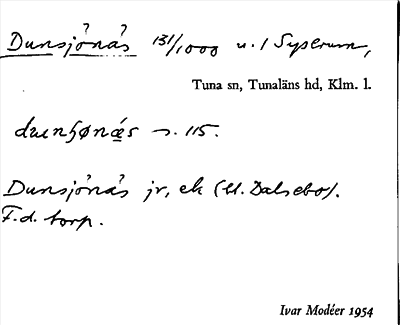 Dunsjönäs 131/1000 u. / Syserum,
Tuna sn, Tunaläns hd, Klm. l.
s. 115.
Dunsjönäs jr, ek (U. Dalsebo).
F.d. torp.
Ivar Modéer 1954